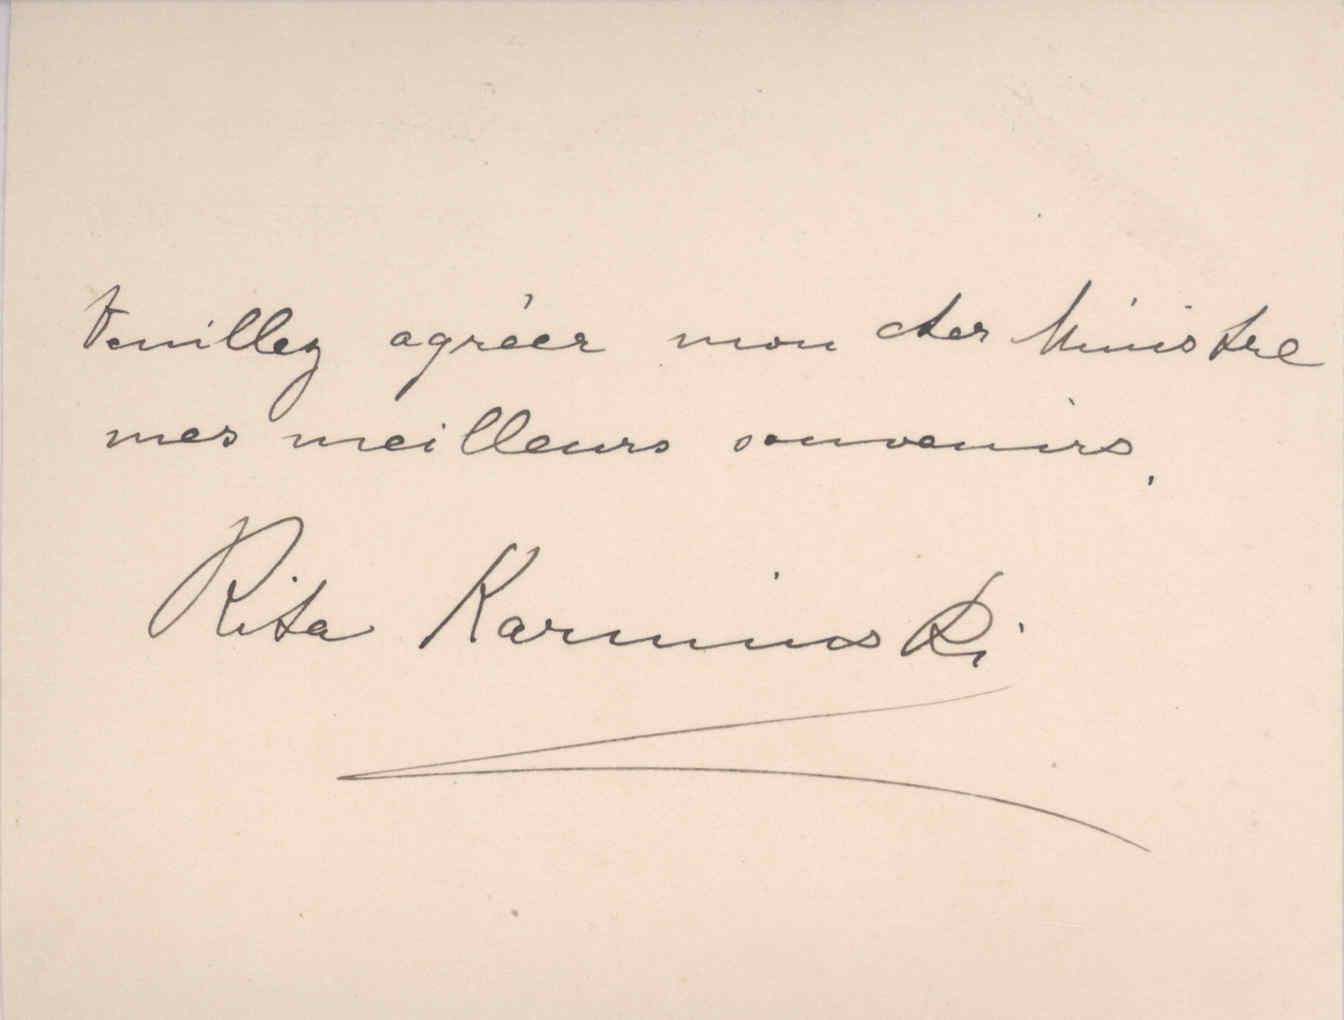 Veuillez agréer mon cher Ministre
mes meilleurs souvenirs.
Rita Karminski